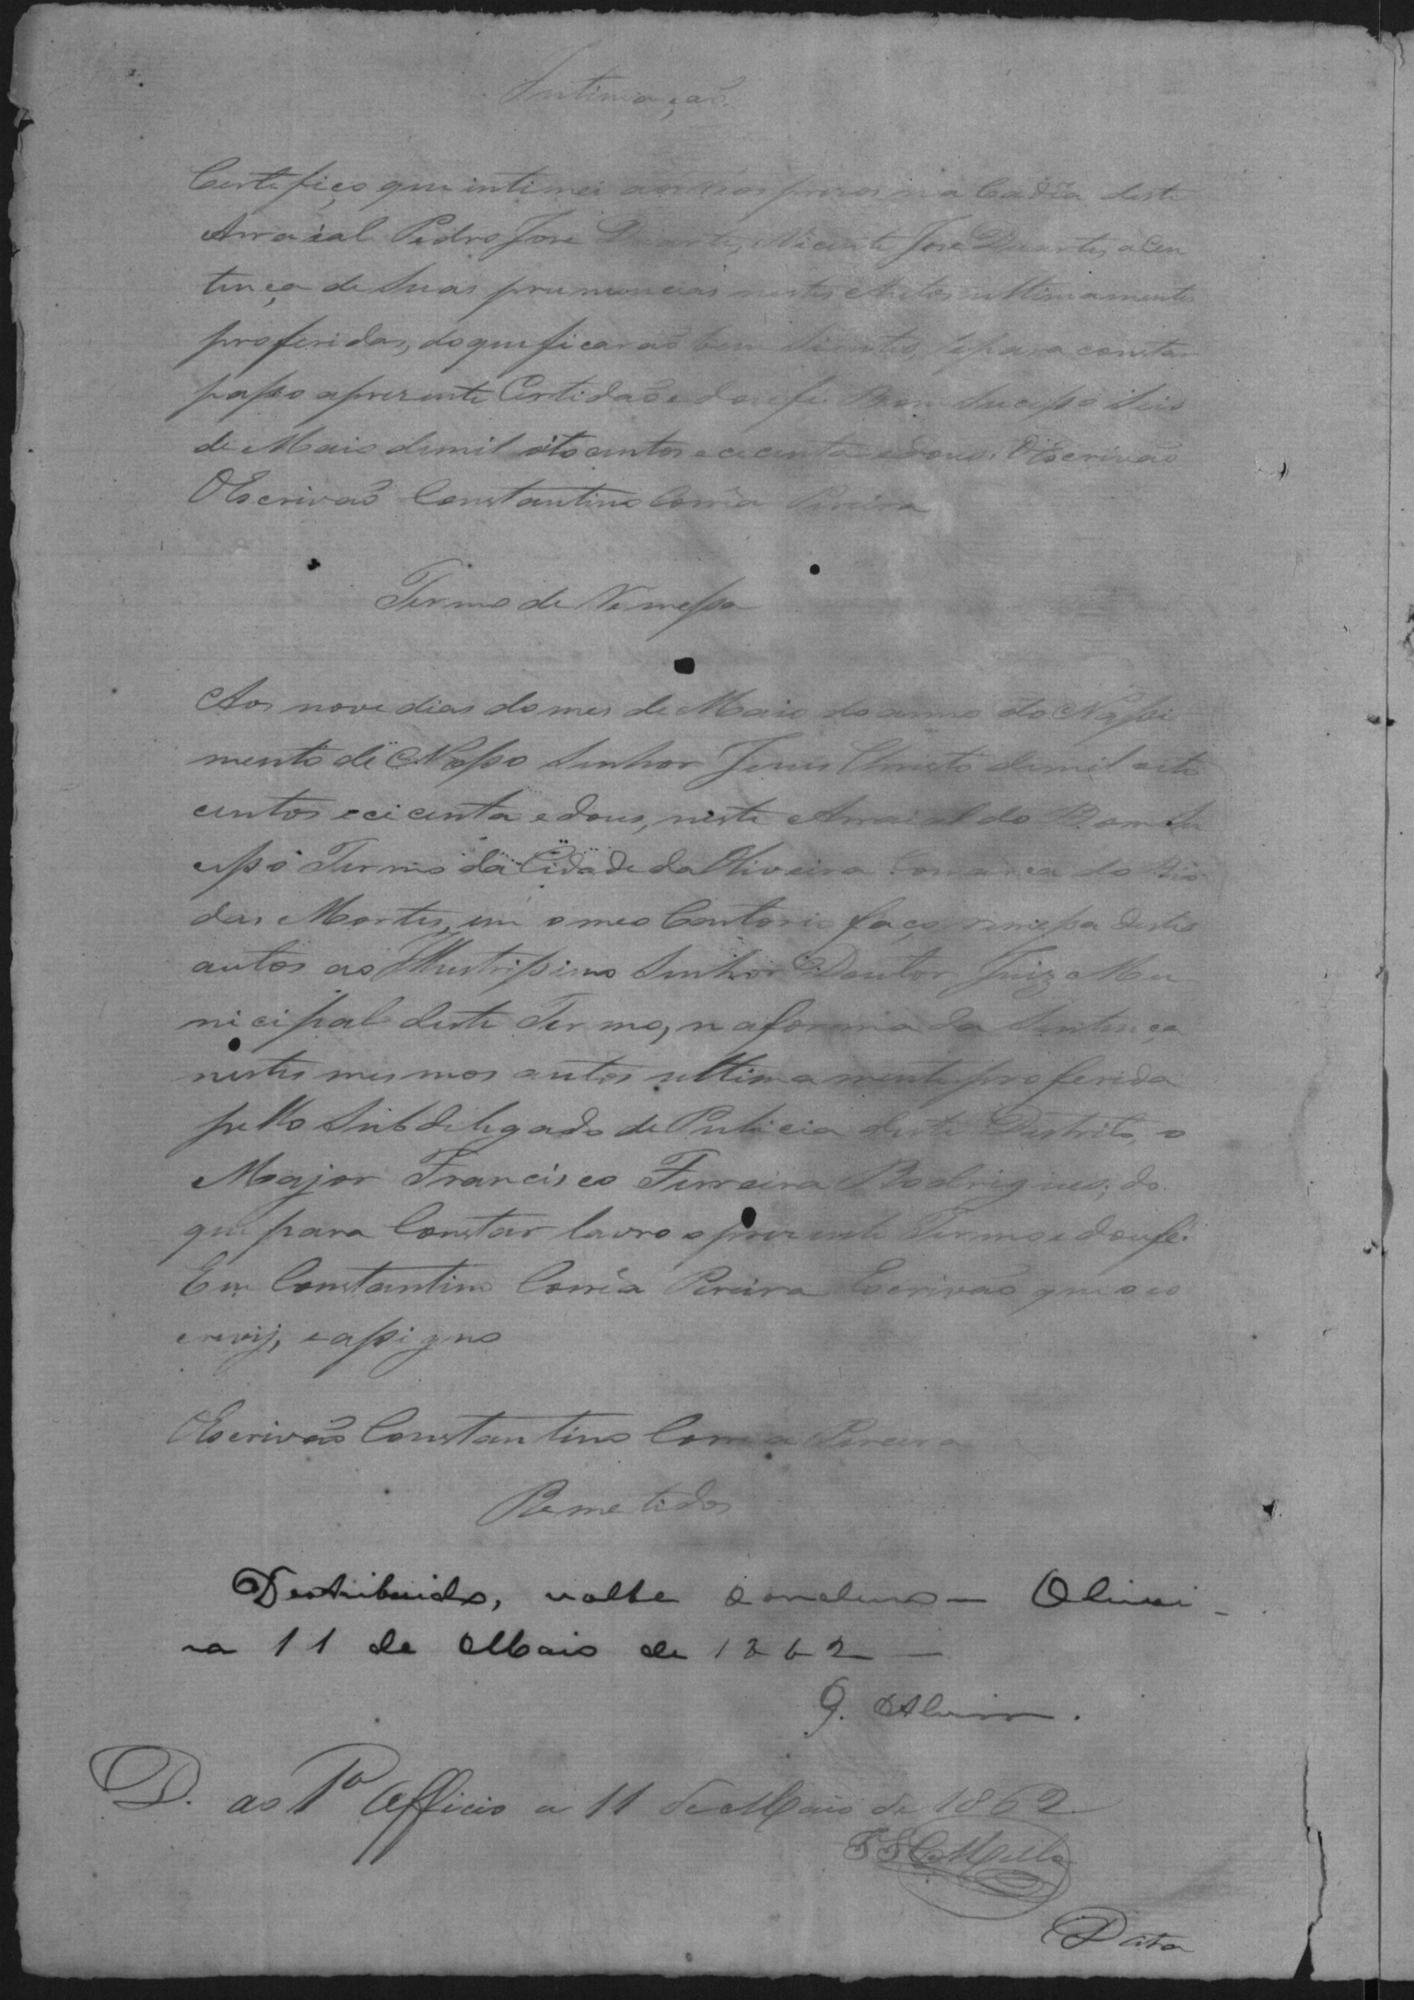 Intimação
Certifico que intimei aos reos prezos na Cadêa deste
Arraial Pedro José Duarte, Vicente José Duarte, a Cen
tença de suas pronuncias nestes Autos ultimamente
proferidas, do que ficarão bem sientes, e para constar
passo a prezente Certidão e dou fé. Bom Sucesso seis
de Maio de mil oitocentos e cecenta e dous. O Escrivão
O Escrivão Constantino Corrêa Pereira
Termo de Remessa
Aos nove dias do mes de Maio do anno do Nassi
mento de Nosso Senhor Jesus Christo de mil oito
centos e cecenta e dous, neste Arraial do Bom Su
cesso Termo da Cidade da Oliveira Comarca do Rio
das Mortes, em o meo Cartorio faço remessa destes
autos ao Illustrissimo Senhor Doutor Juiz Mu
nicipal deste Termo, na forma da Sentença
nestes mesmos autos ultimamente proferida
pello Subdelegado de Pulicia deste Destrito, o
Major Francisco Ferreira Rodrigues; do
que para Constar lavro o prezente Termo e dou fé.
Eu Constantino Corrêa Pereira Escrivão que o es
crevij, e assigno
O Escrivão Constantino Corrêa Pereira
Remetidos
Destribuido, volte concluso — Olivei-
ra 11 de Maio de 1862 —
G. Alvim.
D. ao 1º Officio a 11 de Maio de 1862
Mello
Data